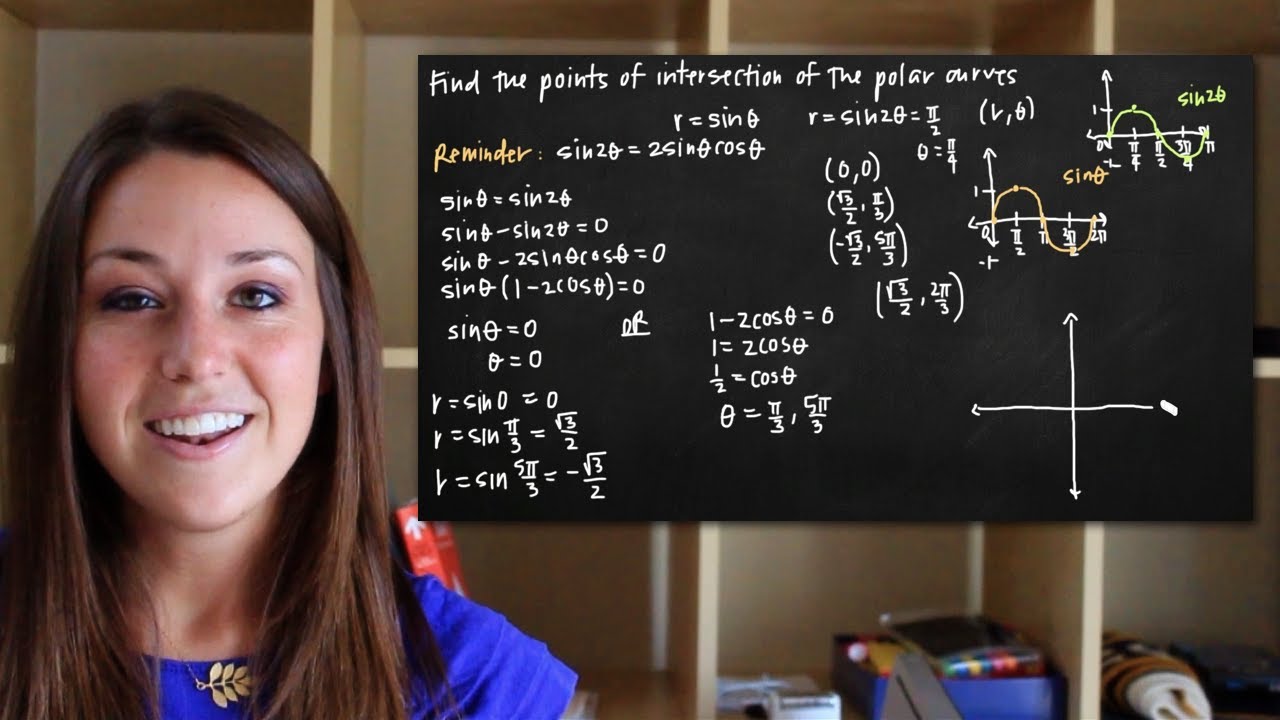 Find the points of intersection of the polar curves
r = sinθ r = sin2θ = π/2 (r, θ)
θ = π/4
Reminder: sin2θ = 2sinθcosθ
sinθ = sin2θ
sinθ - sin2θ = 0
sinθ - 2sinθcosθ = 0
sinθ(1 - 2cosθ) = 0
sinθ = 0
θ = 0
OR
1 - 2cosθ = 0
1 = 2cosθ
1/2 = cosθ
θ = π/3, 5π/3
r = sin0 = 0
r = sin π/3 = √3/2
r = sin 5π/3 = -√3/2
(0, 0)
(√3/2, π/3)
(-√3/2, 5π/3)
(√3/2, 2π/3)
sin2θ
1
0 π/4 π/2 3π/4 π
-1
sinθ
1
0 π/2 π 3π/2 2π
-1